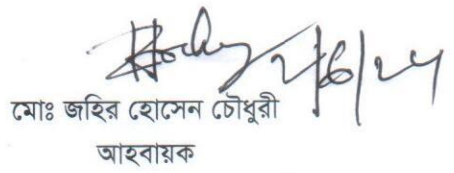 2/6/24
মোঃ জহির হোসেন চৌধুরী
আহবায়ক